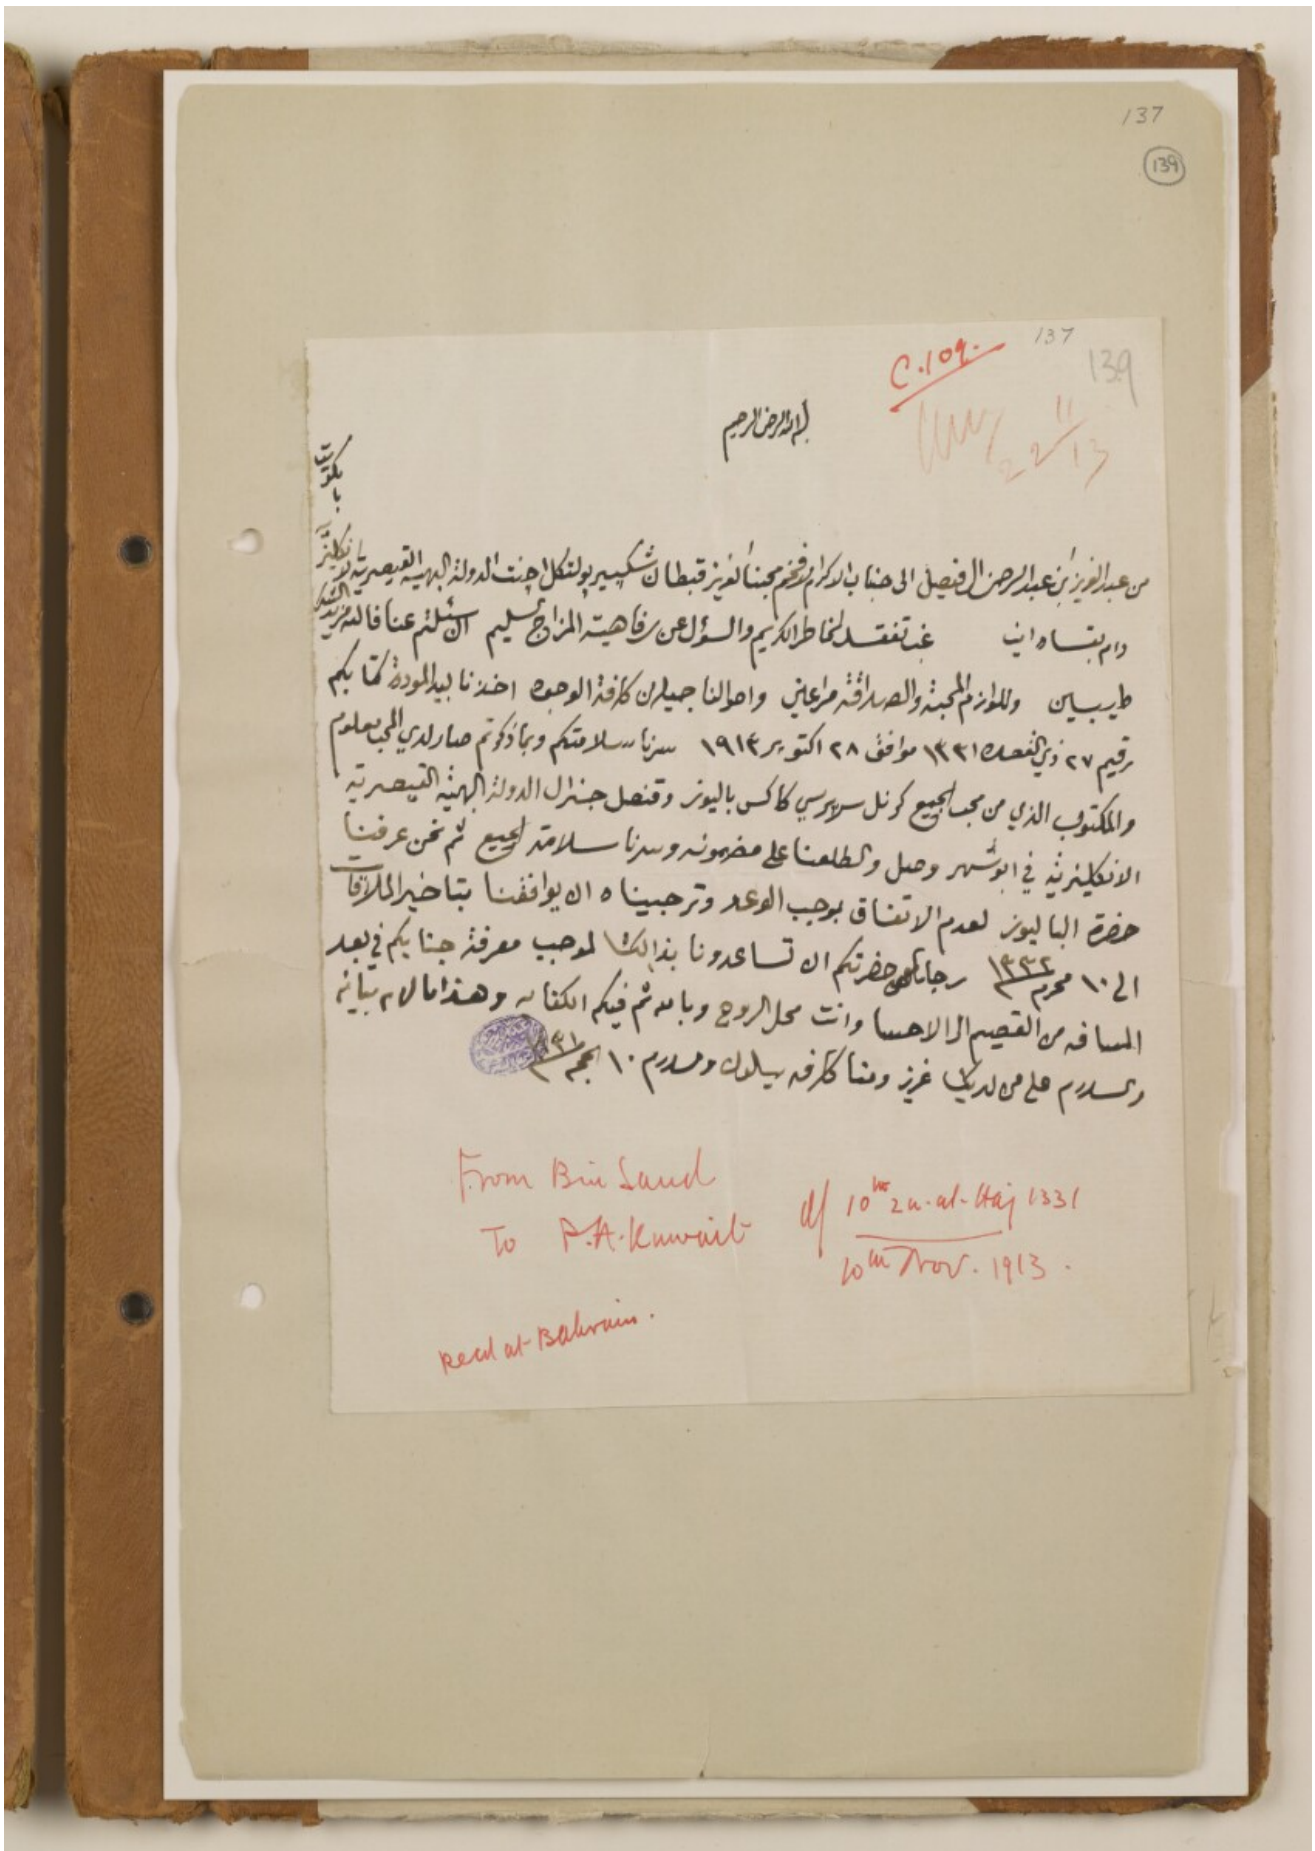 137
139
137
C.109.
139
22 11/13
بسم الله الرحمن الرحيم
من عبد العزيز ابن عبد الرحمن ال فيصل الى جناب الاكرام الافخم محبنا العزيز قبطان شكسبير بولتكل اجنت الدولة البهية القيصرية الانكليزية
بالكويت
دام بقاه امين غب تفقد الخاطر الكريم والسؤل عن رفاهية المزاج السليم ان سئلتم عنا فالله مزيد الشكر
طيبين وللوازم المحبة والصداقة مراعين واحوالنا جميله من كافة الوجوه اخذنا بيد المودة كتابكم
رقيم ٢٧ ذي القعده ١٣٣١ موافق ٢٨ اكتوبر ١٩١٣ سرنا سلامتكم وبما ذكرتم صار لدي المحب معلوم
والمكتوب الذي من محب الجميع كرنل سر برسي كاكس باليوز وقنصل جنرال الدولة البهية القيصرية
الانكليزية في ابوشهر وصل واطلعنا على مضمونه وسرنا سلامة الجميع ثم نحن عرفنا
حضرة الباليوز لعدم الاتفاق بموجب الوعد وترجيناه ان يوافقنا بتاخير الملاقات
الى ١٠ محرم ١٣٣٢ رجانا من حضرتكم ان تساعدونا بذالك لموجب معرفة جنابكم في بعد
المسافه من القصيم الى الاحسا وانت محل الروح وبالله ثم فيكم الكفايه وهذا ما لزم بيانه
والسلام على من لديك عزيز ومنا كافه يسلمون والسلام ١٠ الحجه ١٣٣١
From Bin Saud
To P.A. Kuwait
d/ 10th Zu-al-Haj 1331
10th Nov. 1913.
Recd at Bahrain.